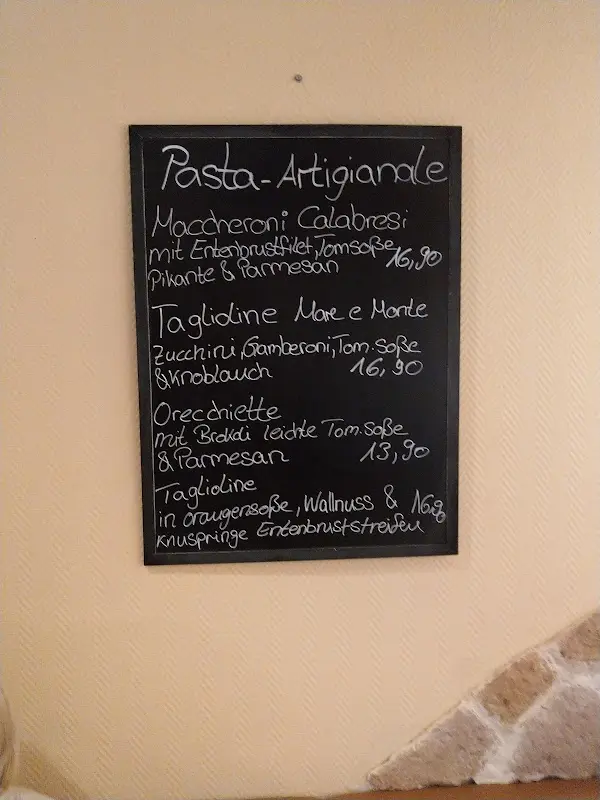 Pasta-Artigianale
Maccheroni Calabresi
mit Entenbrustfilet, Tomsoße
Pikante & Parmesan 16,90
Taglioline Mare e Monte
Zucchini, Gamberoni, Tom.soße
& Knoblauch 16,90
Orecchiette
mit Brokoli leichte Tom.soße
& Parmesan 13,90
Taglioline
in orangensoße, Wallnuss & 16,90
knuspringe Entenbruststreifen